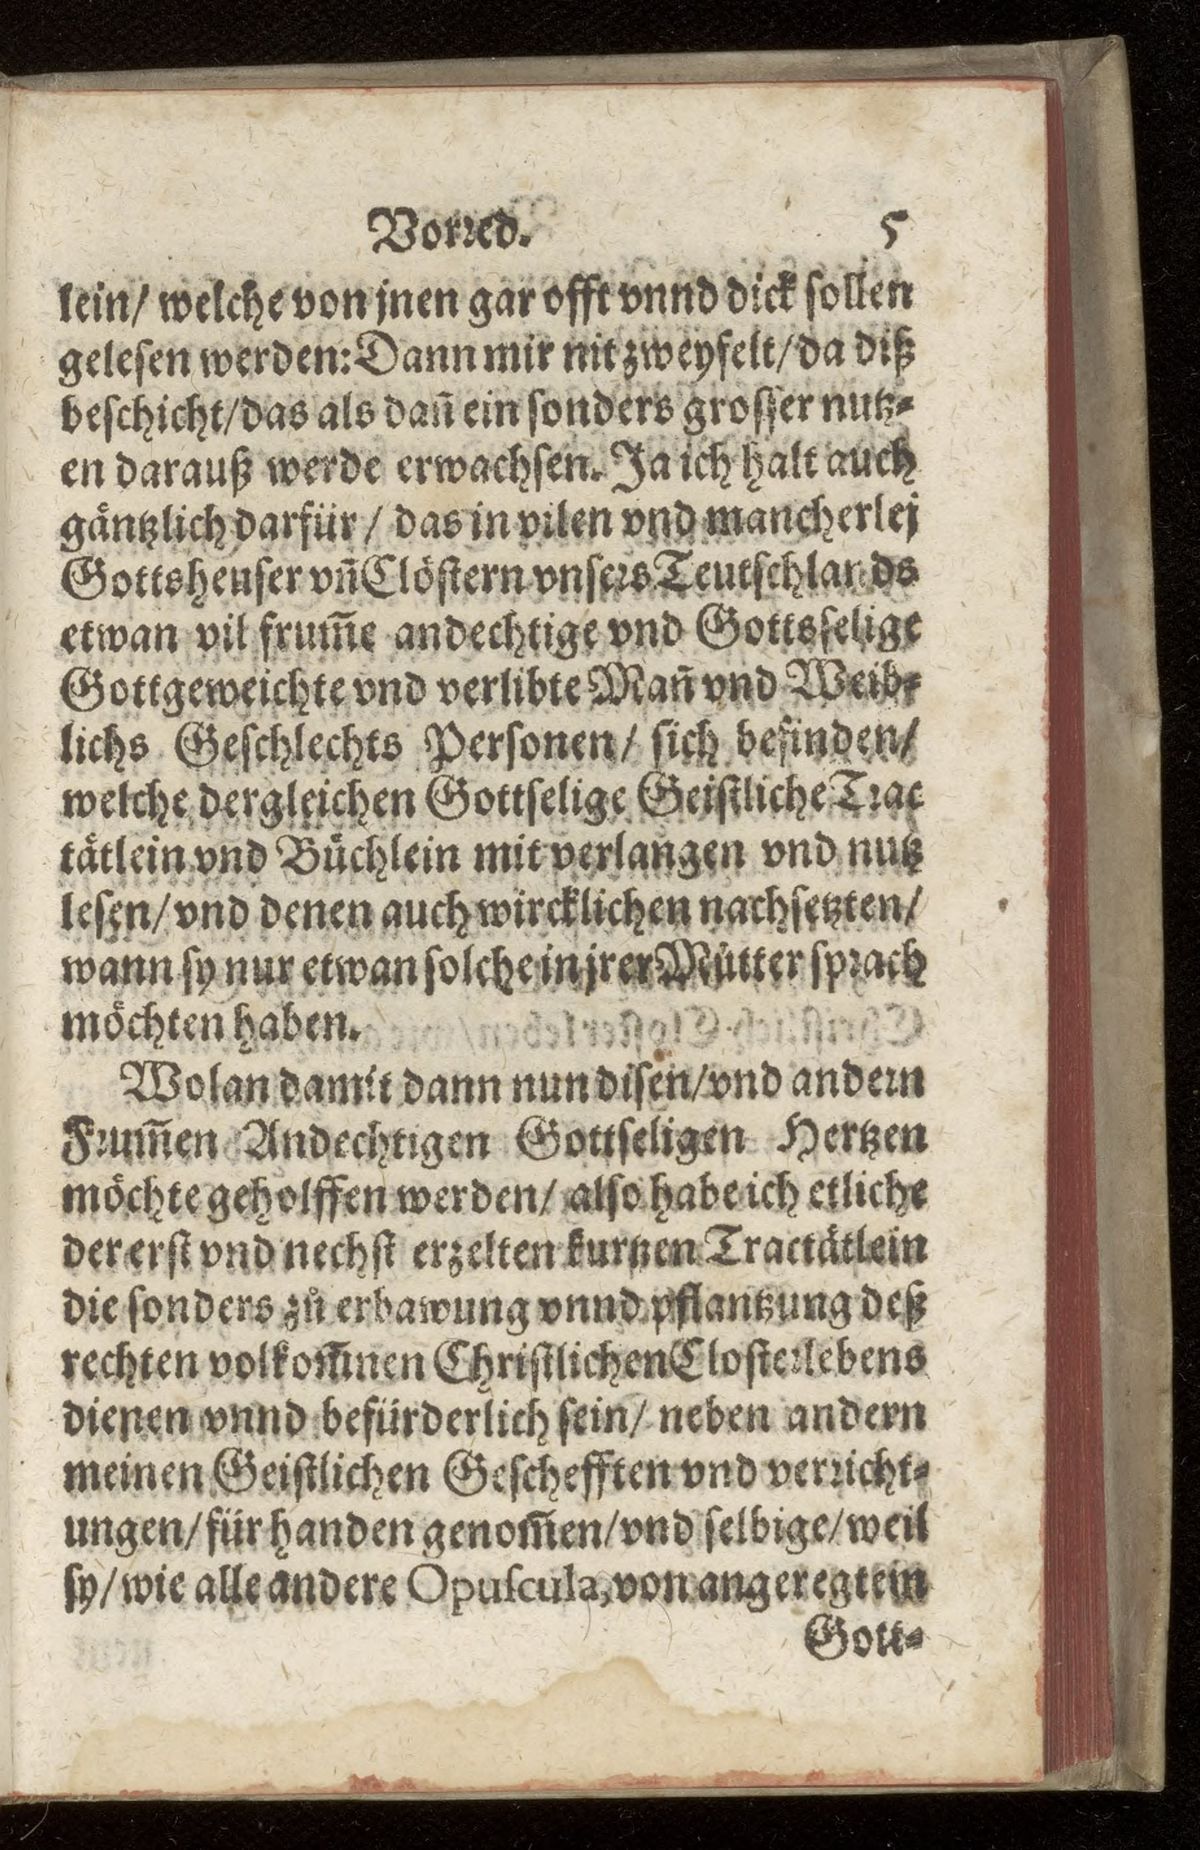 Vorred. 5
lein/ welche von jnen gar offt vnnd dick sollen
gelesen werden: Dann mir nit zweyfelt/ da diß
beschicht/ das als dañ ein sonders grosser nutz-
en darauß werde erwachsen. Ja ich halt auch
gäntzlich darfür/ das in vilen vnd mancherlej
Gottsheuser vñ Clöstern vnsers Teutschlands
etwan vil frum̃e andechtige vnd Gottsselige
Gottgeweichte vnd verlibte Mañ vnd Weib-
lichs Geschlechts Personen/ sich befinden/
welche dergleichen Gottselige Geistliche Trac
tätlein vnd Büchlein mit verlangen vnd nutz
lesen/ vnd denen auch wircklichen nachsetzten/
wann sy nur etwan solche in jrer Můtter sprach
möchten haben.
Wolan damit dann nun disen/ vnd andern
Frum̃en Andechtigen Gottseligen Hertzen
möchte geholffen werden/ also habe ich etliche
der erst vnd nechst erzelten kurtzen Tractätlein
die sonders zů erbawung vnnd pflantzung deß
rechten volkom̃nen Christlichen Closterlebens
dienen vnnd befürderlich sein/ neben andern
meinen Geistlichen Geschefften vnd verricht-
ungen/ für handen genom̃en/ vnd selbige/ weil
sy/ wie alle andere Opuscula, von angeregtein
Gott-